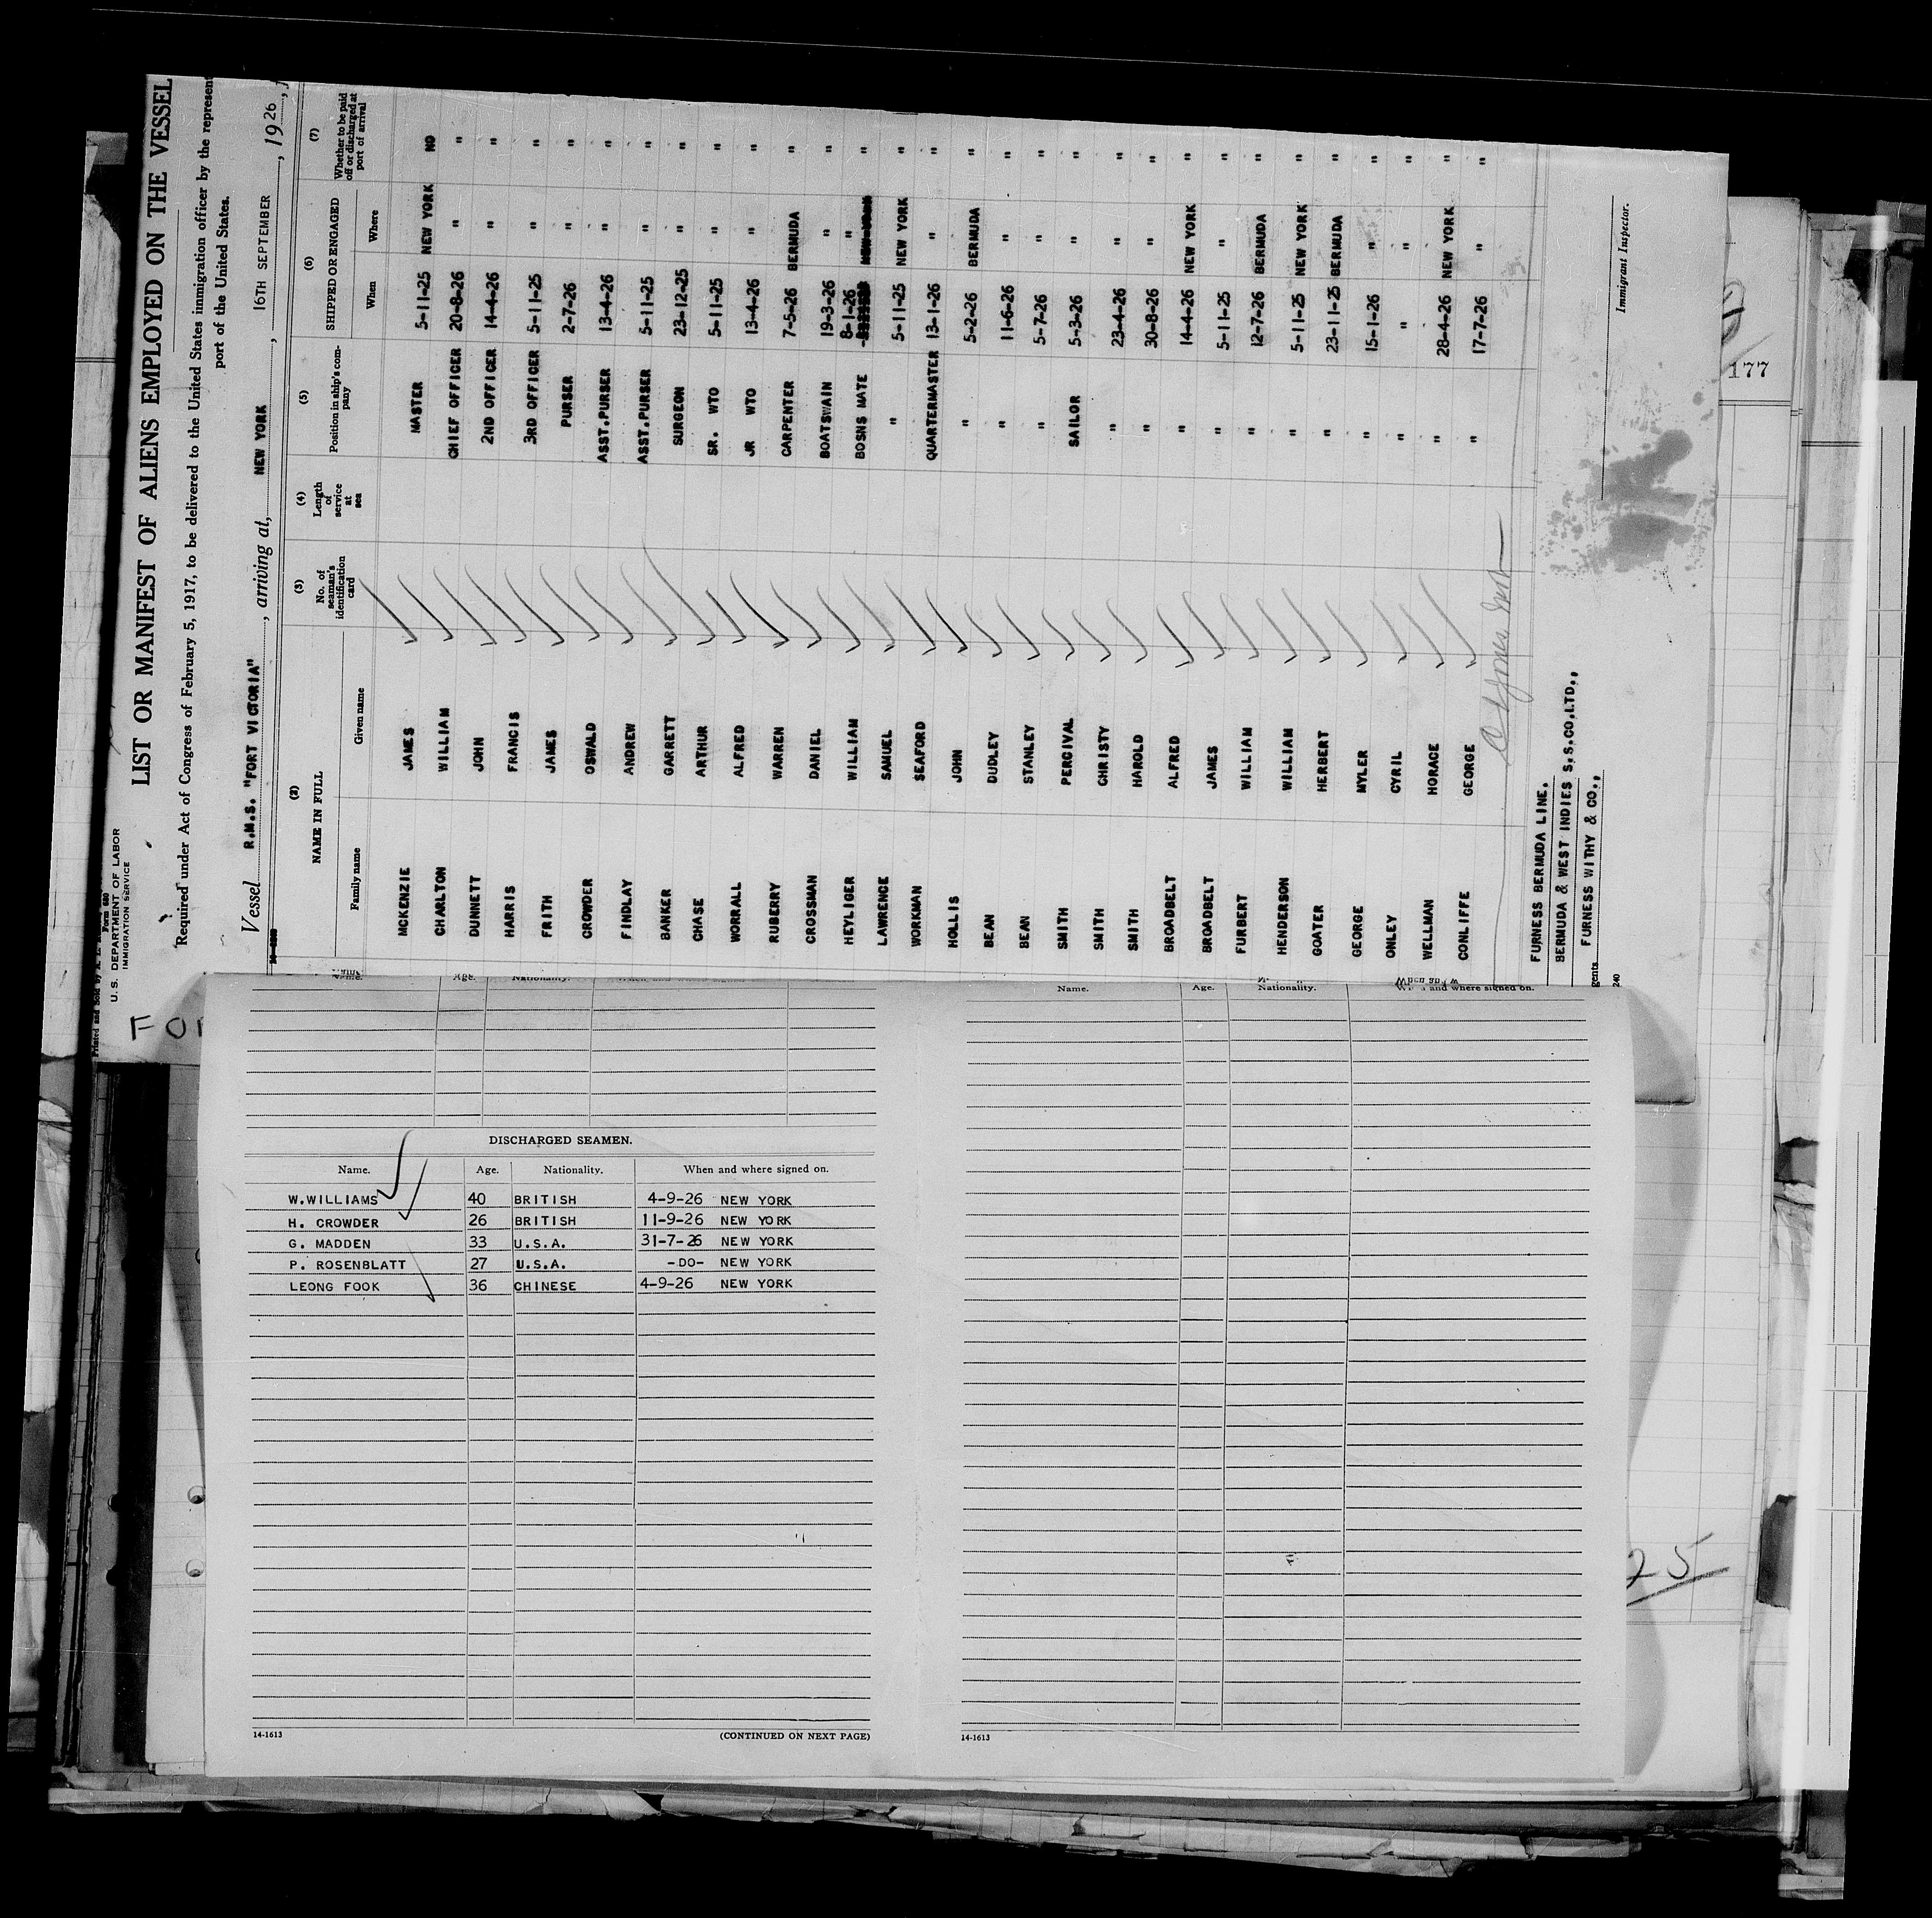 Form 680
U. S. DEPARTMENT OF LABOR
IMMIGRATION SERVICE
LIST OR MANIFEST OF ALIENS EMPLOYED ON THE VESSEL
Required under Act of Congress of February 5, 1917, to be delivered to the United States immigration officer by the represent
port of the United States.
Vessel R.M.S. "FORT VICTORIA", arriving at, NEW YORK, 16TH SEPTEMBER, 1926,
(2) (3) (4) (5) (6) (7)
NAME IN FULL No. of seaman's identification card Length of service at sea Position in ship's company SHIPPED OR ENGAGED Whether to be paid off or discharged at port of arrival
Family name Given name When Where
MCKENZIE JAMES MASTER 5-11-25 NEW YORK NO
CHARLTON WILLIAM CHIEF OFFICER 20-8-26 " "
DUNNETT JOHN 2ND OFFICER 14-4-26 " "
HARRIS FRANCIS 3RD OFFICER 5-11-25 " "
FRITH JAMES PURSER 2-7-26 " "
CROWDER OSWALD ASST.PURSER 13-4-26 " "
FINDLAY ANDREW ASST.PURSER 5-11-25 " "
BANKER GARRETT SURGEON 23-12-25 " "
CHASE ARTHUR SR. WTO 5-11-25 " "
WORRALL ALFRED JR WTO 13-4-26 " "
RUBERRY WARREN CARPENTER 7-5-26 BERMUDA "
CROSSMAN DANIEL BOATSWAIN 19-3-26 " "
HEYLIGER WILLIAM BOSNS MATE 8-1-26 " "
LAWRENCE SAMUEL " 5-11-25 NEW YORK "
WORKMAN SEAFORD QUARTERMASTER 13-1-26 " "
HOLLIS JOHN " 5-2-26 BERMUDA "
BEAN DUDLEY " 11-6-26 " "
BEAN STANLEY " 5-7-26 " "
SMITH PERCIVAL SAILOR 5-3-26 " "
SMITH CHRISTY " 23-4-26 " "
SMITH HAROLD " 30-8-26 " "
BROADBELT ALFRED " 14-4-26 NEW YORK "
BROADBELT JAMES " 5-11-25 " "
FURBERT WILLIAM " 12-7-26 BERMUDA "
HENDERSON WILLIAM " 5-11-25 NEW YORK "
GOATER HERBERT " 23-11-25 BERMUDA "
GEORGE MYLER " 15-1-26 " "
ONLEY CYRIL " " " "
WELLMAN HORACE " 28-4-26 NEW YORK "
CONLIFFE GEORGE " 17-7-26 " "
FURNESS BERMUDA LINE.
BERMUDA & WEST INDIES S.S.CO.LTD.,
FURNESS WITHY & CO.,
gents
240
Immigrant Inspector.
177
25
Name. Age. Nationality. When and where signed on.
DISCHARGED SEAMEN.
Name. Age. Nationality. When and where signed on.
W.WILLIAMS 40 BRITISH 4-9-26 NEW YORK
H. CROWDER 26 BRITISH 11-9-26 NEW YORK
G. MADDEN 33 U.S.A. 31-7-26 NEW YORK
P. ROSENBLATT 27 U.S.A. -DO- NEW YORK
LEONG FOOK 36 CHINESE 4-9-26 NEW YORK
14-1613 (CONTINUED ON NEXT PAGE)
Name. Age. Nationality. When and where signed on.
14-1613